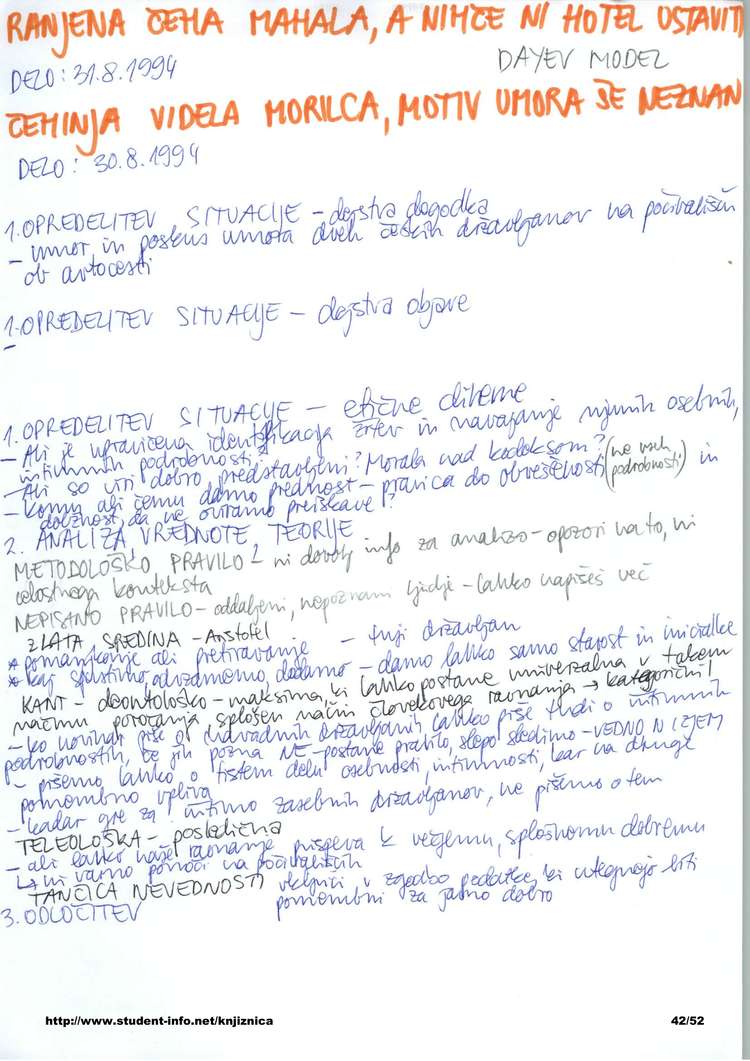 RANJENA ČEHA MAHALA, A NIHČE NI HOTEL USTAVITI
DELO: 31.8.1994
DAYEV MODEL
ČEHINJA VIDELA MORILCA, MOTIV UMORA ŠE NEZNAN
DELO: 30.8.1994
1. OPREDELITEV SITUACIJE – dejstva dogodka
– umor in poskus umora dveh čeških državljanov na počivališču
ob avtocesti
1. OPREDELITEV SITUACIJE – dejstva objave
–
1. OPREDELITEV SITUACIJE – etične dileme
– Ali je upravičena identifikacija žrtev in navajanje njunih osebnih,
intimnih podrobnosti?
– Ali so viri dobro predstavljeni? Morala nad kodeksom? (ne vseh podrobnosti)
– Komu ali čemu damo prednost – pravica do obveščenosti in
dolžnost, da ne oviramo preiskave?
2. ANALIZA, VREDNOTE, TEORIJE
METODOLOŠKO PRAVILO – ni dovolj info za analizo – opozori na to, ni
celostnega konteksta
NEPISANO PRAVILO – oddaljeni, nepoznani ljudje – lahko napišeš več
ZLATA SREDINA – Aristotel
* pomanjkanje ali pretiravanje – tuji državljan
* kaj spustimo, odvzamemo, dodamo – damo lahko samo starost in inicialke
KANT – deontološko – maksima, ki lahko postane univerzalna v takem
načinu poročanja, splošen način človekovega ravnanja → kategorični!
– ko novinar piše o državljanih lahko piše tudi o intimnih
podrobnostih, če jih pozna NE – postane pravilo, slepo sledimo – VEDNO, NI IZJEM
– pišemo lahko o tistem delu osebnosti, intimnosti, kar na druge
pomembno vpliva
– kadar gre za intimo zasebnih državljanov, ne pišemo o tem
TELEOLOŠKA – posledična
– ali lahko naše ravnanje prispeva k večjemu, splošnemu dobremu
↳ ni varno ponoči na počivališčih
TANČICA NEVEDNOSTI vključi v zgodbo podatke, ki utegnejo biti
pomembni za javno dobro
3. ODLOČITEV
http://www.student-info.net/knjiznica
42/52